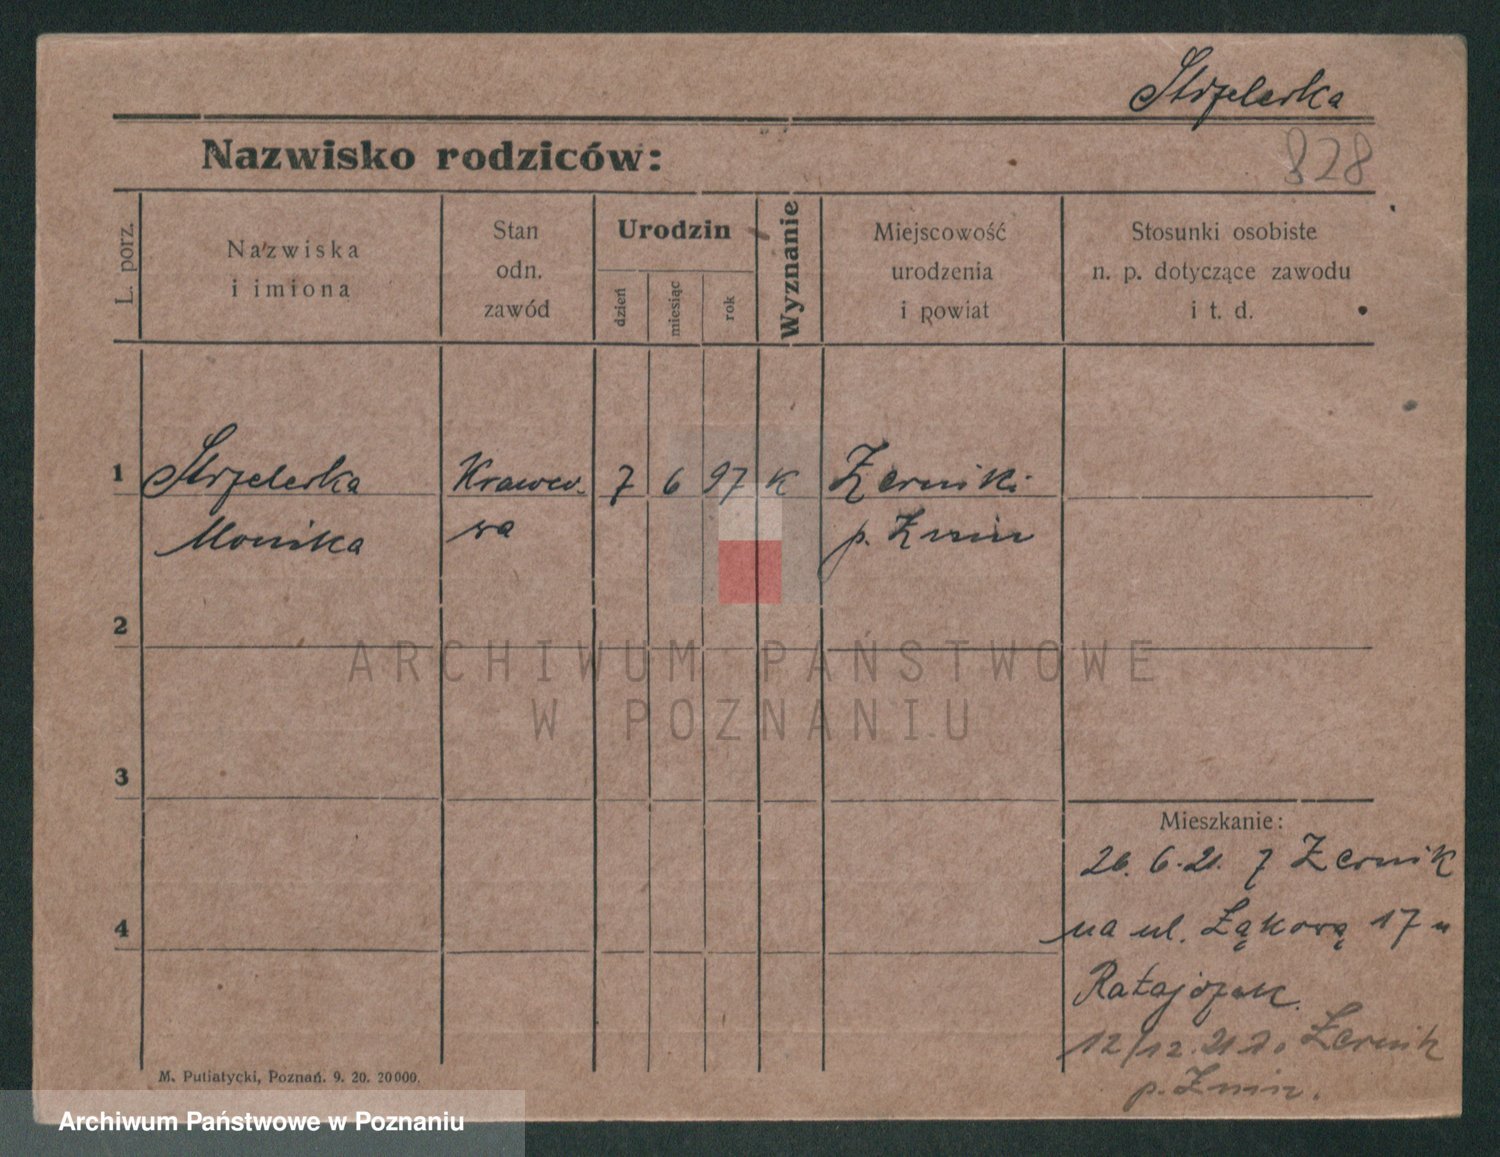 Strzelecka
Nazwisko rodziców:
828
L. porz.
Nazwiska
i imiona
Stan
odn.
zawód
Urodzin
dzień
miesiąc
rok
Wyznanie
Miejscowość
urodzenia
i powiat
Stosunki osobiste
n. p. dotyczące zawodu
i t. d.
1 Strzelecka Krawco- 7 6 97 K Żerniki
Monika wa p. Żnin
2
ARCHIWUM PAŃSTWOWE
W POZNANIU
3
Mieszkanie:
26. 6. 21. z Żernik
4
na ul. Łąkową 17 u
Ratajczak.
12/12. 21 do Żernik
p. Żnin.
M. Putiatycki, Poznań. 9. 20. 20000.
Archiwum Państwowe w Poznaniu